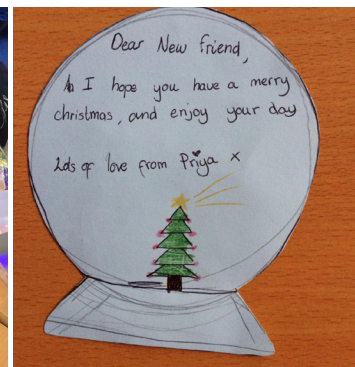 Dear New friend,
I hope you have a merry
christmas, and enjoy your day
Lds of love from Priya x